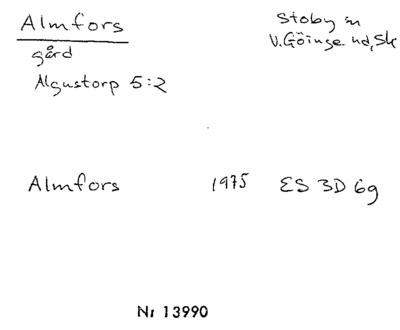 Almfors
gård
Algustorp 5:2
Stoby sn
V. Göinge hd, Sk
Almfors 1975 ES 3D 6g
Nr 13990